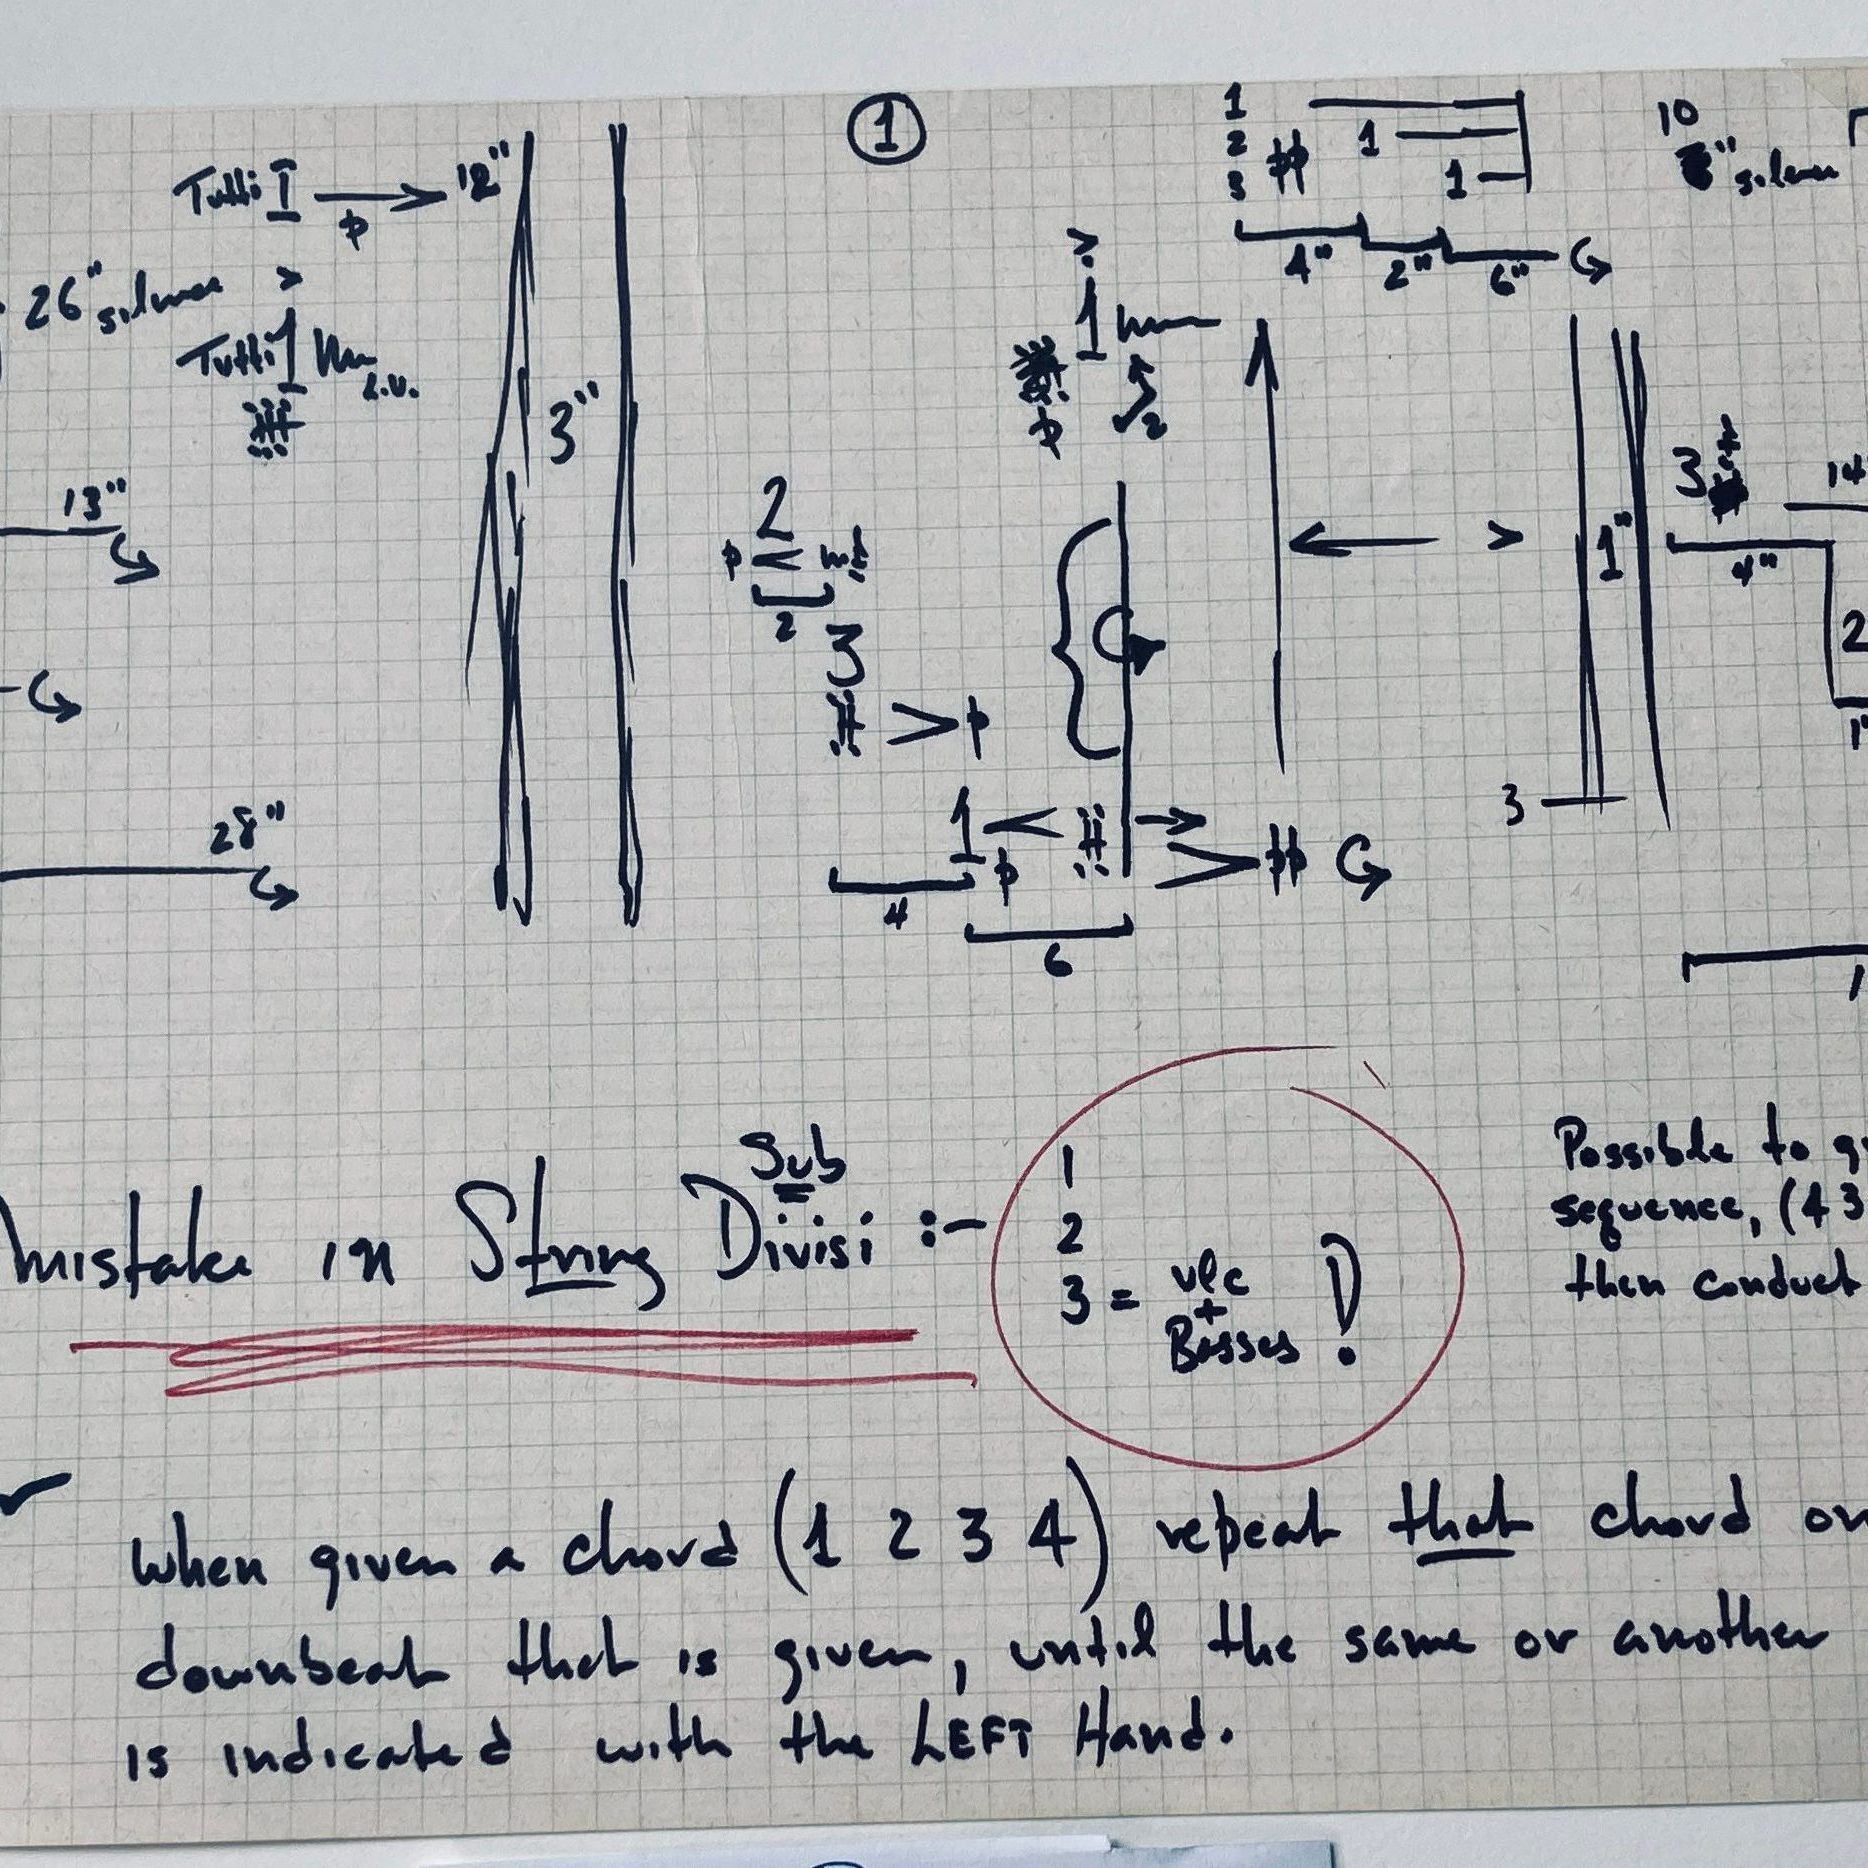 1
Tutti I p 12"
26" silence >
Tutti 1 L.V.
13"
28"
3"
2
p <
2
3
> p
1 <
p
4
6
>
1
p 2
> pp
1
2 pp 1
3 1
4" 2" 6"
>
1"
3
10
" silence
3
4"
14
2
1"
1
Sub
mistake in String Divisi :-
1
2
3 = vlc
+
Basses !
Possible to
sequence, (4 3
then conduct
When given a chord (1 2 3 4) repeat that chord on
downbeat that is given, until the same or another
is indicated with the LEFT Hand.